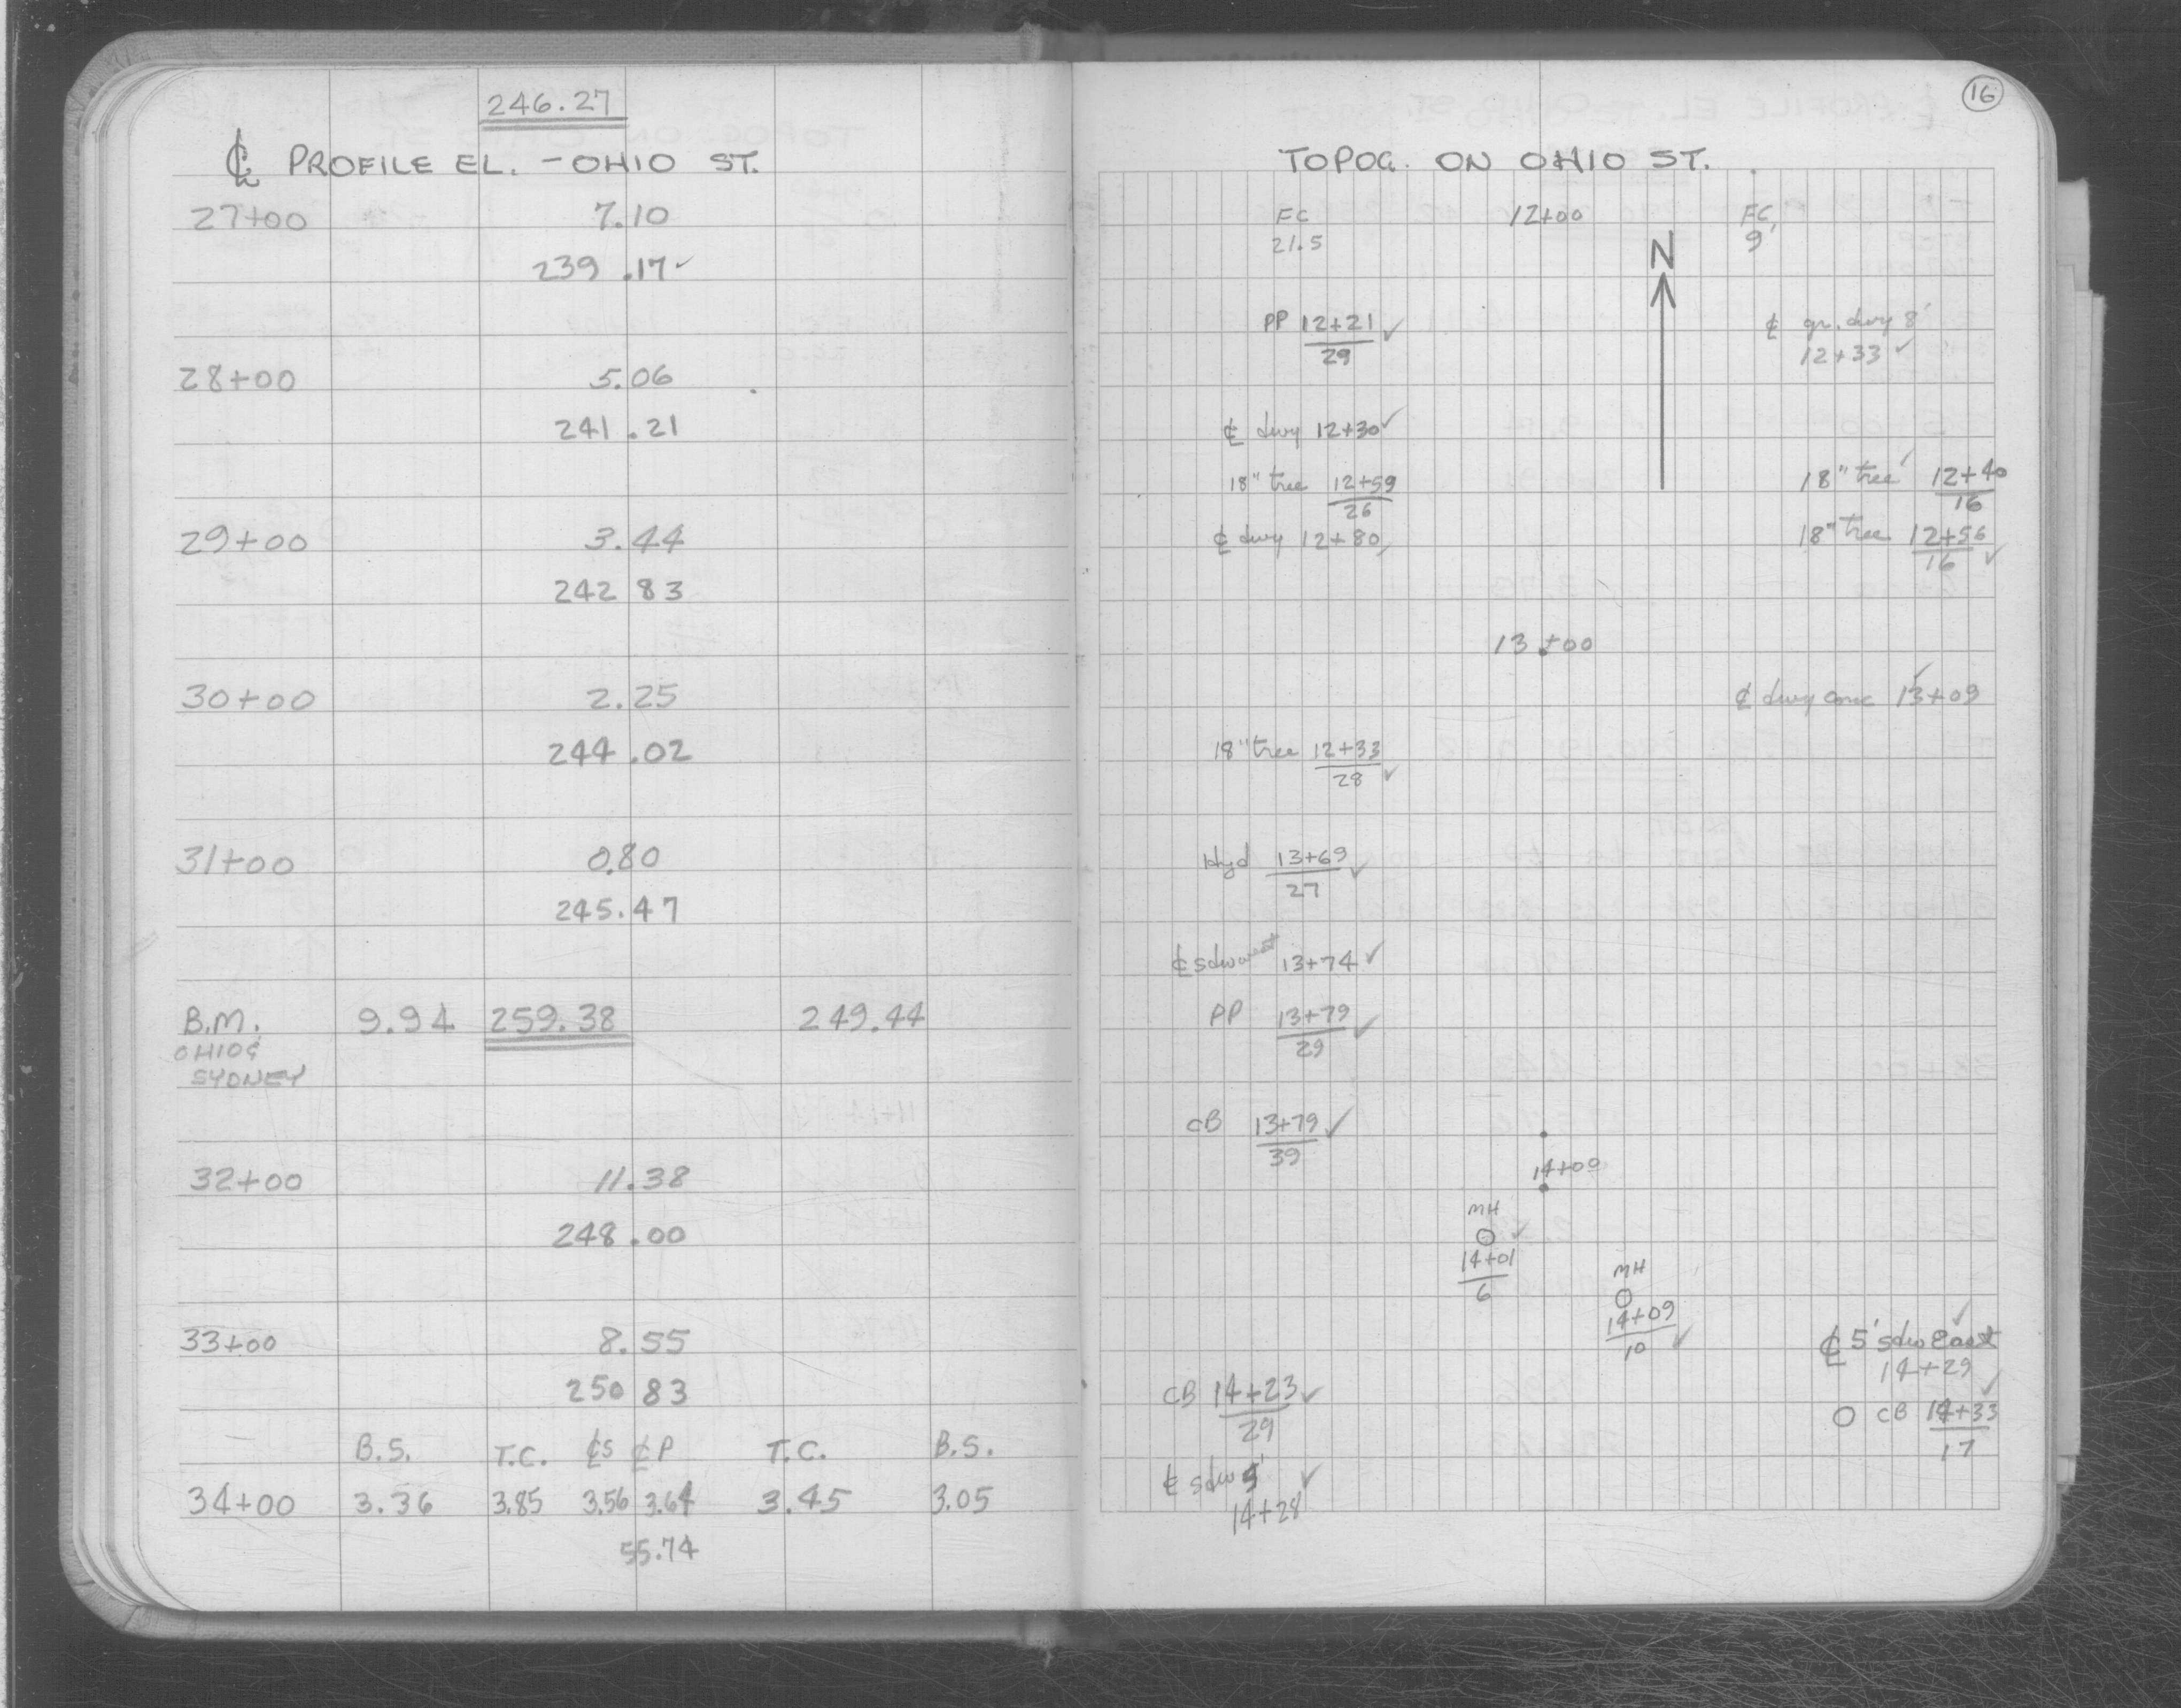 246.27
℄ PROFILE EL. - OHIO ST.
27+00 7.10
239.17✓
28+00 5.06
241.21
29+00 3.44
242 83
30+00 2.25
244.02
31+00 0.80
245.47
B.M. 9.94 259.38 249.44
OHIO &
SYDNEY
32+00 11.38
248.00
33+00 8.55
250 83
B.S. T.C. ℄S ℄P T.C. B.S.
34+00 3.36 3.85 3.56 3.64 3.45 3.05
55.74
16
TOPOG. ON OHIO ST.
FC 12+00 FC
21.5 9'
N
PP 12+21 ✓ ℄ gr. dwy 8'
29 12+33 ✓
℄ dwy 12+30 ✓
18" tree 12+59 18" tree ✓ 12+40
26 16
℄ dwy 12+80 18" tree 12+56
16 ✓
13+00
℄ dwy conc 13+09 ✓
18" tree 12+33
28 ✓
Hyd 13+69 ✓
27
℄ sdw west 13+74 ✓
PP 13+79 ✓
29
CB 13+79 ✓
39
14+00
MH
✓
14+01
6
MH
14+09
10 ✓
℄ 5' sdw East ✓
14+29
CB 14+23 ✓
29
CB 14+33 ✓
17
℄ sdw 5' ✓
14+28